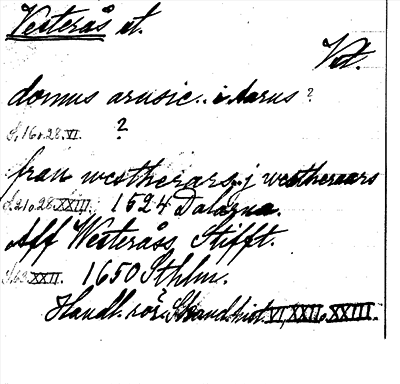 Vesterås st.
Vst.
domus arusic.. i. Aarus?
S. 16 o. 28. VI. ?
fran westherars, j westheraars
S. 21 o. 28 XXIII. 1524 Dalarna.
Aff Westeråss Stifft.
S. 63 XXII. 1650 Sthlm.
Handl. rör. Skand. hist. VI, XXII o XXIII.